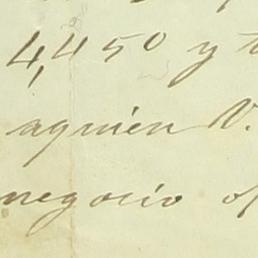 4,450 y t
aquien V.
negocio of